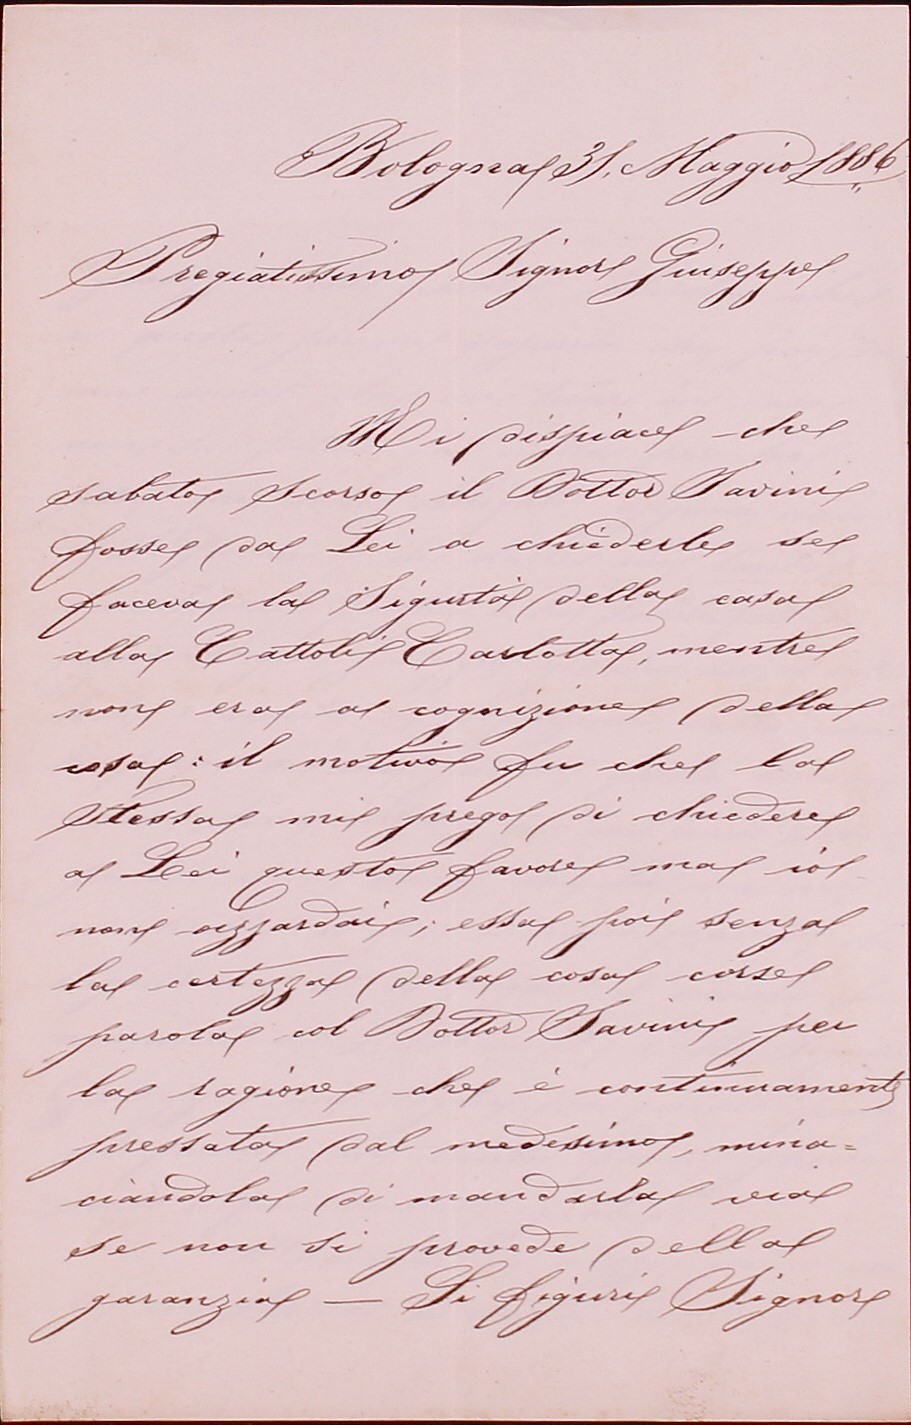 Bologna 31. Maggio 1886
Pregiatissimo Signor Giuseppe
Mi dispiace che
sabato scorso il Dottor Savini
fosse da Lei a chiederle se
faceva la Sigurtà della casa
alla Cattoli Carlotta, mentre
non era a cognizione della
cosa: il motivo fu che la
stessa mi pregò di chiedere
a Lei questo favore ma io
non azzardai; essa poi senza
la certezza della cosa corse
parola col Dottor Savini per
la ragione che è continuamente
pressata dal medesimo, mina=
ciandola di mandarla via
se non si provede della
garanzia — Si figuri Signor